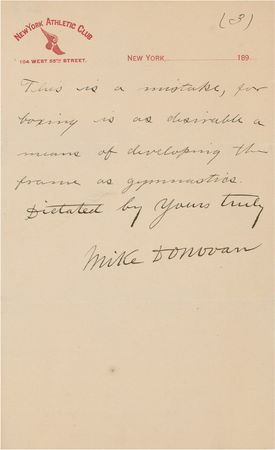 (3)
NEW YORK ATHLETIC CLUB
104 WEST 55TH STREET.
NEW YORK 189
This is a mistake, for
boxing is as desirable a
means of developing the
frame as gymnastics.
Dictated by Yours truly
Mike Donovan